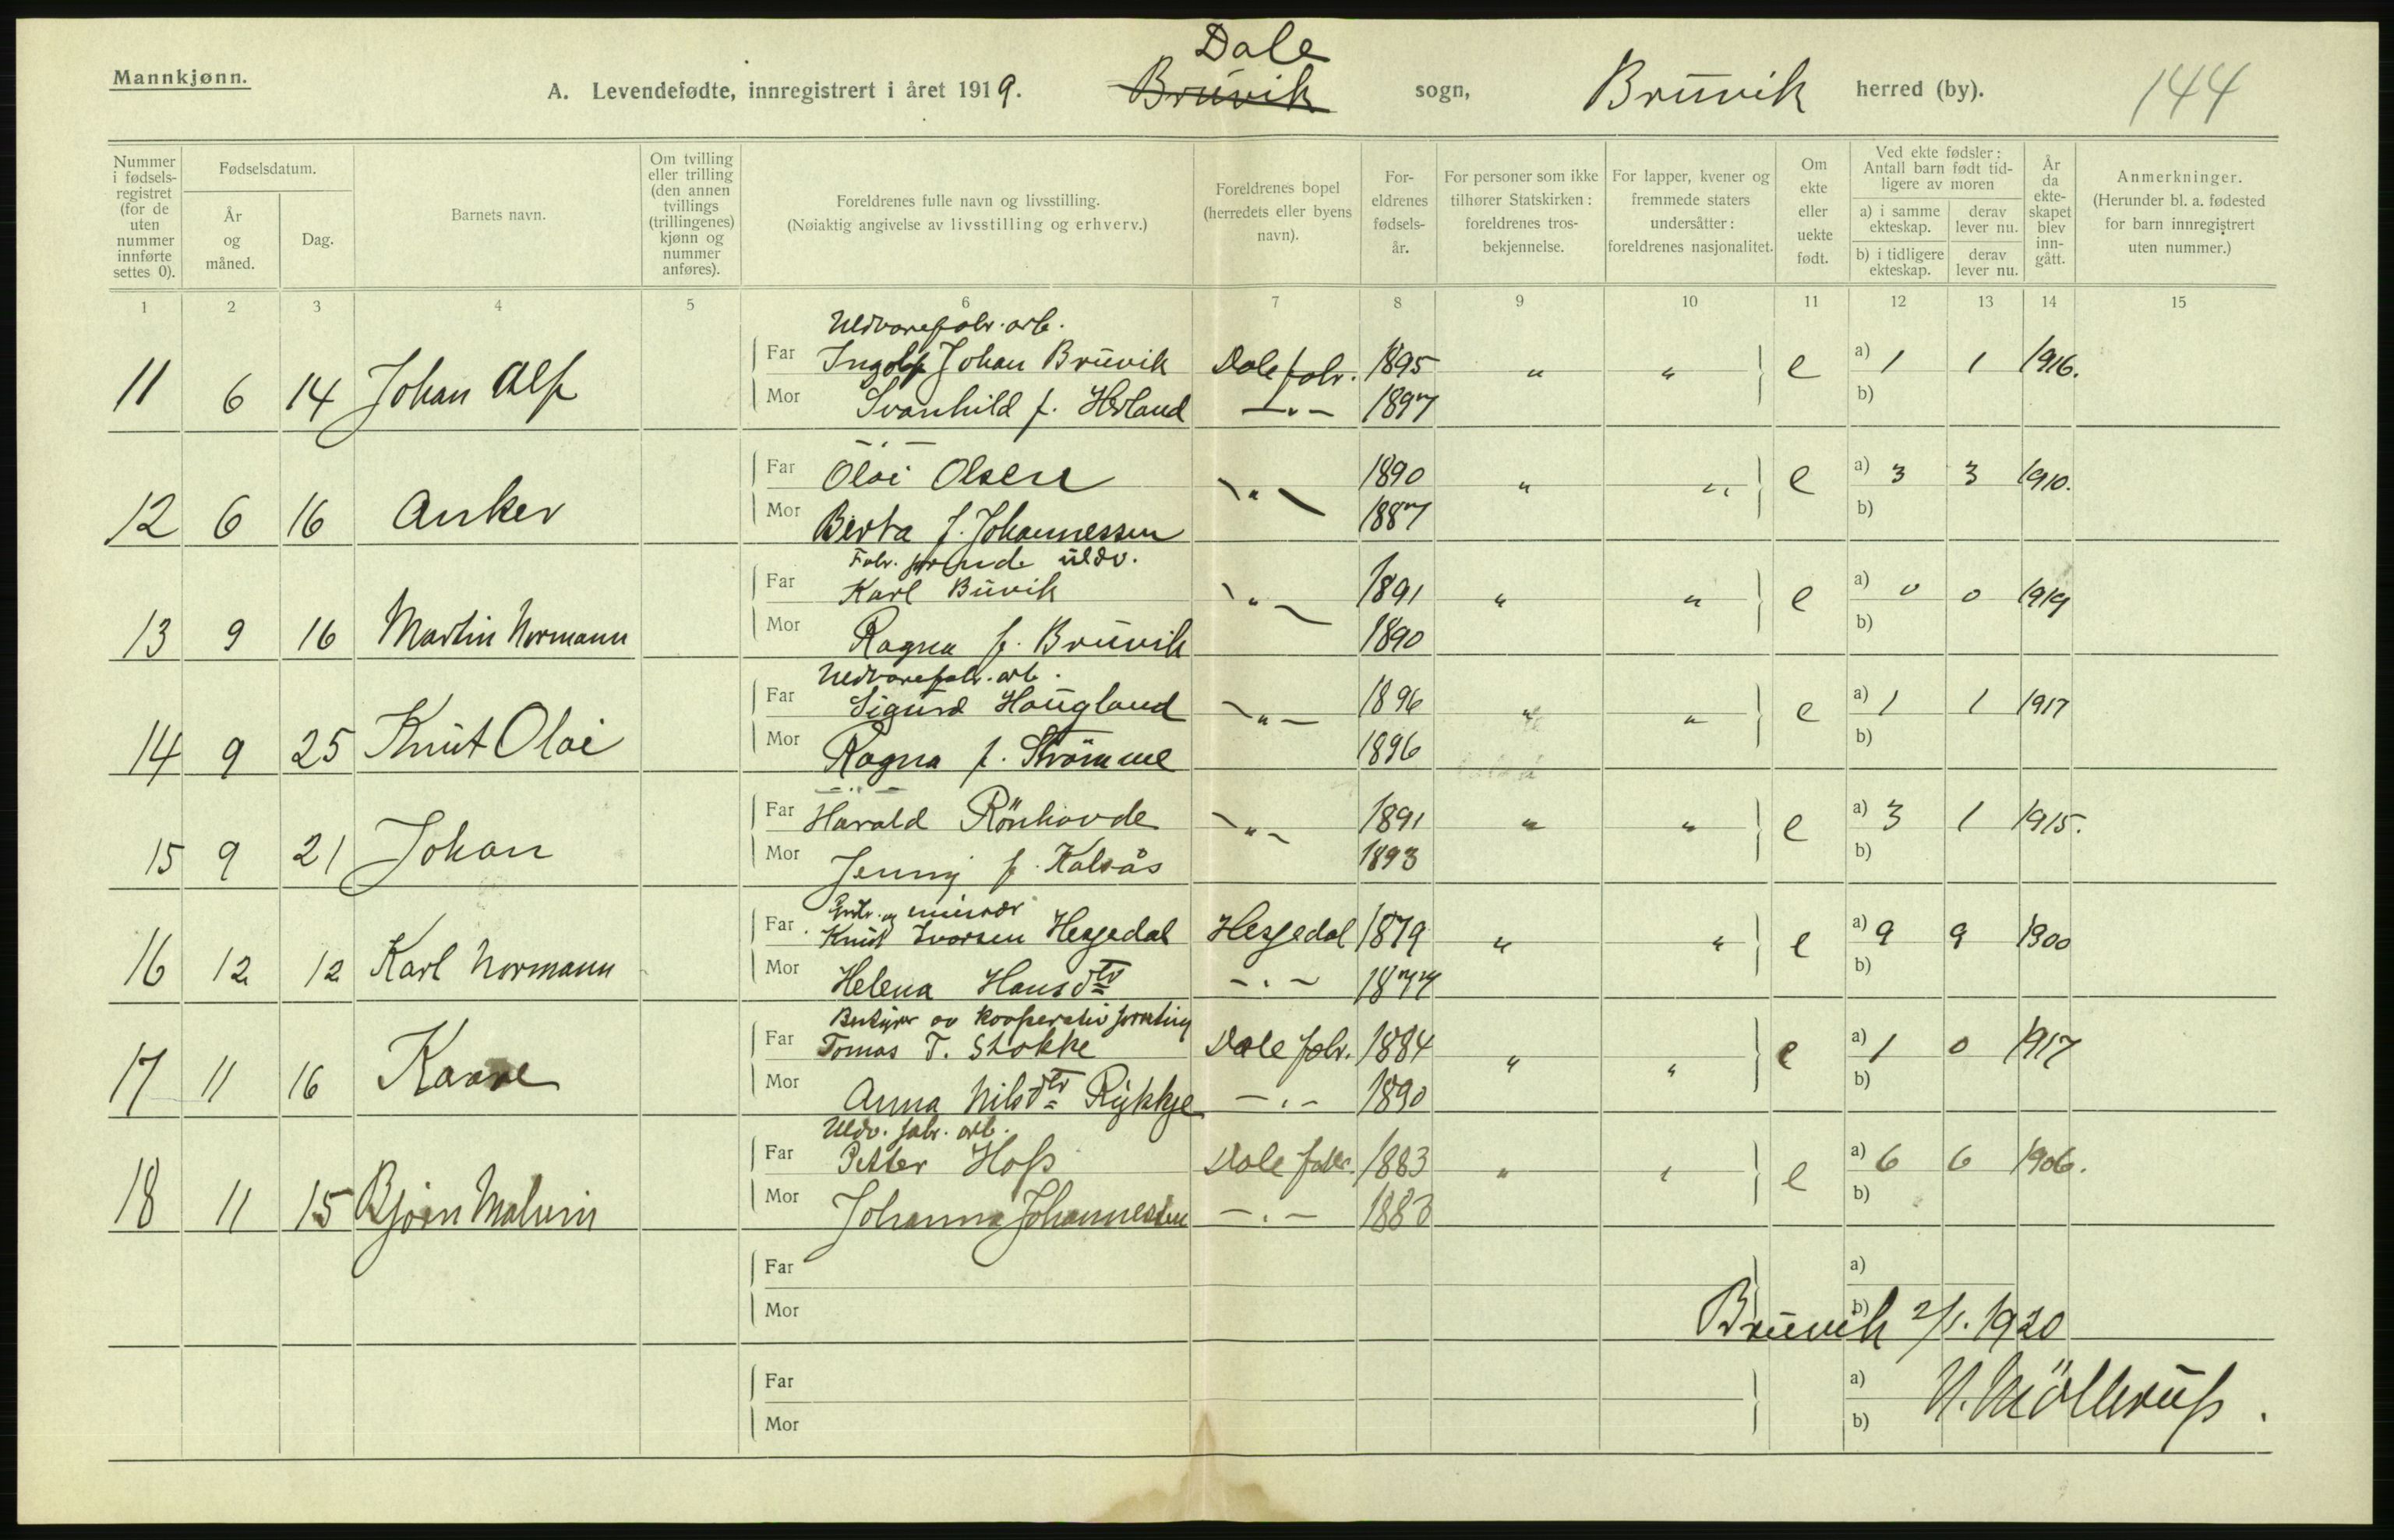 Dale
Mannkjønn.
A. Levendefødte, innregistrert i året 1919. Bruvik sogn, Bruvik herred (by). 144
Nummer i fødsels-registret (for de uten nummer innførte settes 0).
Fødselsdatum.
År og måned.
Dag.
Barnets navn.
Om tvilling eller trilling (den annen tvillings (trillingenes) kjønn og nummer anføres).
Foreldrenes fulle navn og livsstilling.
(Nøiaktig angivelse av livsstilling og erhverv.)
Foreldrenes bopel (herredets eller byens navn).
For-eldrenes fødsels-år.
For personer som ikke tilhører Statskirken: foreldrenes tros-bekjennelse.
For lapper, kvener og fremmede staters undersåtter: foreldrenes nasjonalitet.
Om ekte eller uekte født.
Ved ekte fødsler: Antall barn født tid-ligere av moren
a) i samme ekteskap.
derav lever nu.
b) i tidligere ekteskap.
derav lever nu.
År da ekte-skapet blev inn-gått.
Anmerkninger.
(Herunder bl. a. fødested for barn innregistrert uten nummer.)
1 2 3 4 5 6 7 8 9 10 11 12 13 14 15
Uldvarefabr. arb.
Far Ingolf Johan Bruvik Dale fabr. 1895 " " e a) 1 1 1916.
11 6 14 Johan Alf
Mor Svanhild f. Herland —"— 1897 b)
—"—
Far Olai Olsen —"— 1890 " " e a) 3 3 1910.
12 6 16 Anker
Mor Berta f. Johannessen 1887 b)
Fabr. uldv.
Far Karl Buvik —"— 1891 " " e a) 0 0 1919
13 9 16 Martin Normann
Mor Ragna f. Bruvik 1890 b)
Uldvarefabr. arb.
Far Sigurd Haugland —"— 1896 " " e a) 1 1 1917
14 9 25 Knut Olai
Mor Ragna f. Strömme 1896 b)
—"—
Far Harald Rönhovde —"— 1891 " " e a) 3 1 1915.
15 9 21 Johan
Mor Jenny f. Kalsås 1893 b)
og
Far Knut Ivarsen Hesjedal Hesjedal 1879 " " e a) 9 9 1900
16 12 12 Karl Normann
Mor Helena Hansdtr —"— 1877 b)
Bestyrer av kooperativ forretning
Far Tomas T. Stokke Dale fabr. 1884 " " e a) 1 0 1917
17 11 16 Kaare
Mor Anna Nilsdtr Rykkje —"— 1890 b)
Uldv. fabr. arb.
Far Petter Hoff Dale fabr. 1883 " " e a) 6 6 1906.
18 11 15 Bjørn Malvin
Mor Johanna Johannessen —"— 1883 b)
Far a)
Mor b)
Bruvik 2/1. 1920
Far a)
Mor b)